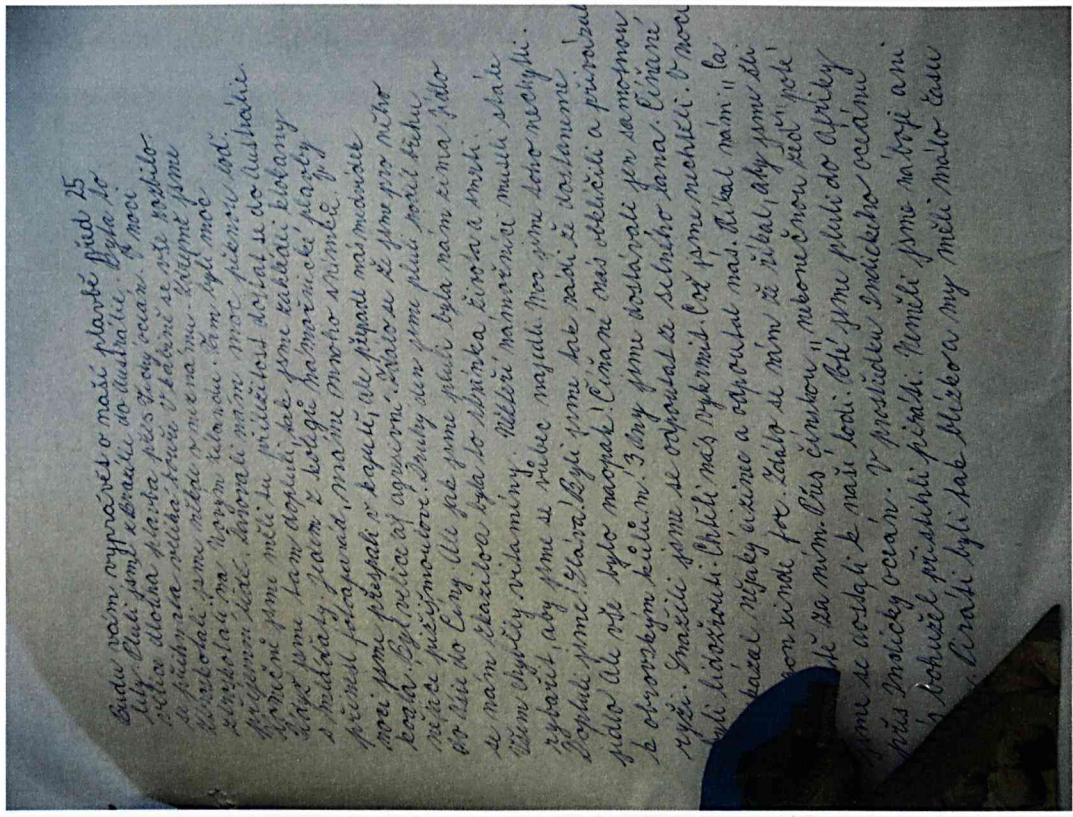 Budu vám vyprávět o naší plavbě před 25
lety. Pluli jsme z Brazílie do Austrálie. Byla to
velice dlouhá plavba přes Tichý oceán. V noci
se přihnala velká bouře v kabině se vše rozbilo
Ztroskotali jsme někde v neznámu. Zřejmě jsme
ztroskotali na Novém Zélandu. Tam byl moc
příjemní lidé. Darovali nám moc pěknou loď
Konečně jsme měli tu příležitost dostat se do Austrálie.
Když jsme tam dopluli, tak jsme nakládali kokosy
a mikádaty jeden z kolegů námořnické plavby
přinesl fotoaparát, máme mnoho snímků. Při
noci jsme přespali v kajutě, ale přepadl nás medvídek
koala. Byl velice až agresivní. Zdálo se že jsme pro něho
nějací vetřelci. Druhý den jsme pluli podél břehu
do Číny. Ale jak jsme pluli byla nám zima. Jídlo
se nám zkazilo a byla to chvilka života a smrti.
Všem chyběly vitamíny. Někteří námořníci museli stále
rybařit, aby jsme se vůbec najedli. Moc jsme toho nechytli.
Dopluli jsme! Sláva! Byli jsme tak rádi že dostaneme
jídlo. Ale vše bylo naopak! Číňané nás obklíčili a přivázali
k obrovským kůlům. 3 dny jsme dostávali jen samotnou
rýži. Snažili jsme se odpoutat ze silného lana. Číňané
byli lidožrouti. Chtěli nás vykrmit. Což jsme nechtěli. V noci
nějaký cizinec a odpoutal nás. Říkal nám "la
Zdálo se nám že říkal, aby jsme šli
za ním. Přes čínskou "nekonečnou zeď" poté
jsme se dostali k naší lodi. Poté jsme pluli do Afriky
přes Indický oceán. V prostředku Indického oceánu
nás bohužel přistihli piráti. Neměli jsme náboje ani
Piráti byli tak blízko a my měli málo času